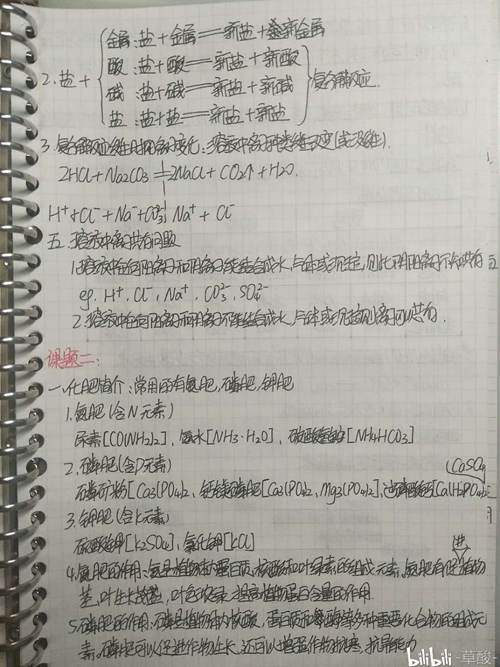 金属:盐+金属==新盐+新金属
2.盐+ 酸:盐+酸==新盐+新酸 复分解反应.
碱:盐+碱==新盐+新碱
盐:盐+盐==新盐+新盐
3.复分解反应发生时的离子变化:溶液中离子种类发生改变(或没发生).
2HCl+Na2CO3=2NaCl+CO2↑+H2O.
H⁺+Cl⁻+Na⁺+CO3²⁻ Na⁺+Cl⁻
五.溶液中离子共存问题
1.溶液中在阳离子和阴离子能结合成水,气体或沉淀,则此阴阳离子不能共存
eg. H⁺. Cl⁻. Na⁺. CO3²⁻. SO4²⁻
2.溶液中在阳离子和阴离子不能结合成水,气体或沉淀则离子可以共存.
课题二:
一.化肥简介:常用的有氮肥,磷肥,钾肥
1.氮肥(含N元素)
尿素[CO(NH2)2],氨水[NH3·H2O],碳酸氢铵[NH4HCO3]
2.磷肥(含P元素) (CaSO4
磷矿粉[Ca3(PO4)2],钙镁磷肥[Ca3(PO4)2,Mg3(PO4)2],过磷酸钙[Ca(H2PO4)2
3.钾肥(含K元素)
硫酸钾[K2SO4],氯化钾[KCl]
4.氮肥的作用:氮是植物体内蛋白质,核酸和叶绿素的组成元素,氮肥有促植物 进
茎,叶生长茂盛,叶色浓绿,提高植物蛋白含量的作用
5.磷肥的作用:磷是植物体内核酸,蛋白质和酶等多种重要化合物的组成元
素,磷肥可以促进作物生长,还可以增强作物抗寒,抗旱能力
bilibili -草酸-